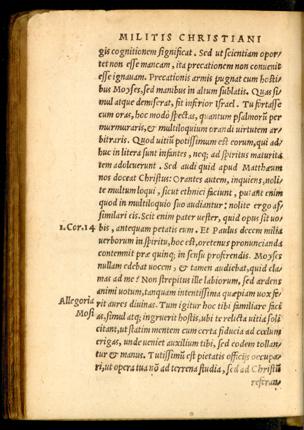 MILITIS CHRISTIANI
gis cognitionem significat. Sed ut scientiam opor/
tet non esse mancam, ita precationem non conuenit
esse ignauam. Precationis armis pugnat cum hosti/
bus Moyses, sed manibus in altum sublatis. Quas si/
mul atque demiserat, fit inferior Israel. Tu fortasse
cum oras, hoc modo spectas, quantum psalmorũ per
murmuraris, & multiloquium orandi uirtutem ar/
bitraris. Quod uitiũ potissimum est eorum, qui ad/
huc in litera sunt infantes, neq; ad spiritus maturita
tem adoleuerunt. Sed audi quid apud Matthæum
nos doceat Christus: Orantes autem, inquiens, noli/
te multum loqui, sicut ethnici faciunt, putãt enim
quod in multiloquio suo audiantur: nolite ergo as/
similari eis. Scit enim pater uester, quid opus sit uo/
1. Cor. 14 bis, antequam petatis eum. Et Paulus decem milia
uerborum in spiritu, hoc est, oretenus pronuncianda
contemnit præ quinq; in sensu proferendis. Moyses
nullam edebat uocem, & tamen audiebat, quid cla
mas ad me? Non strepitus ille labiorum, sed ardens
animi uotum, tanquam intentissima quæpiam uox fe/
Allegoria rit aures diuinas. Tum igitur hoc tibi familiare faci
Mosi as, simul atq; ingruerit hostis, ubi te relicta uitia soli
citant, ut statim mentem cum certa fiducia ad cœlum
erigas, unde ueniet auxilium tibi, sed eodem tollan/
tur & manus. Tutissimũ est pietatis officijs occupa/
ri, ut opera tua nõ ad terrena studia, sed ad Christũ